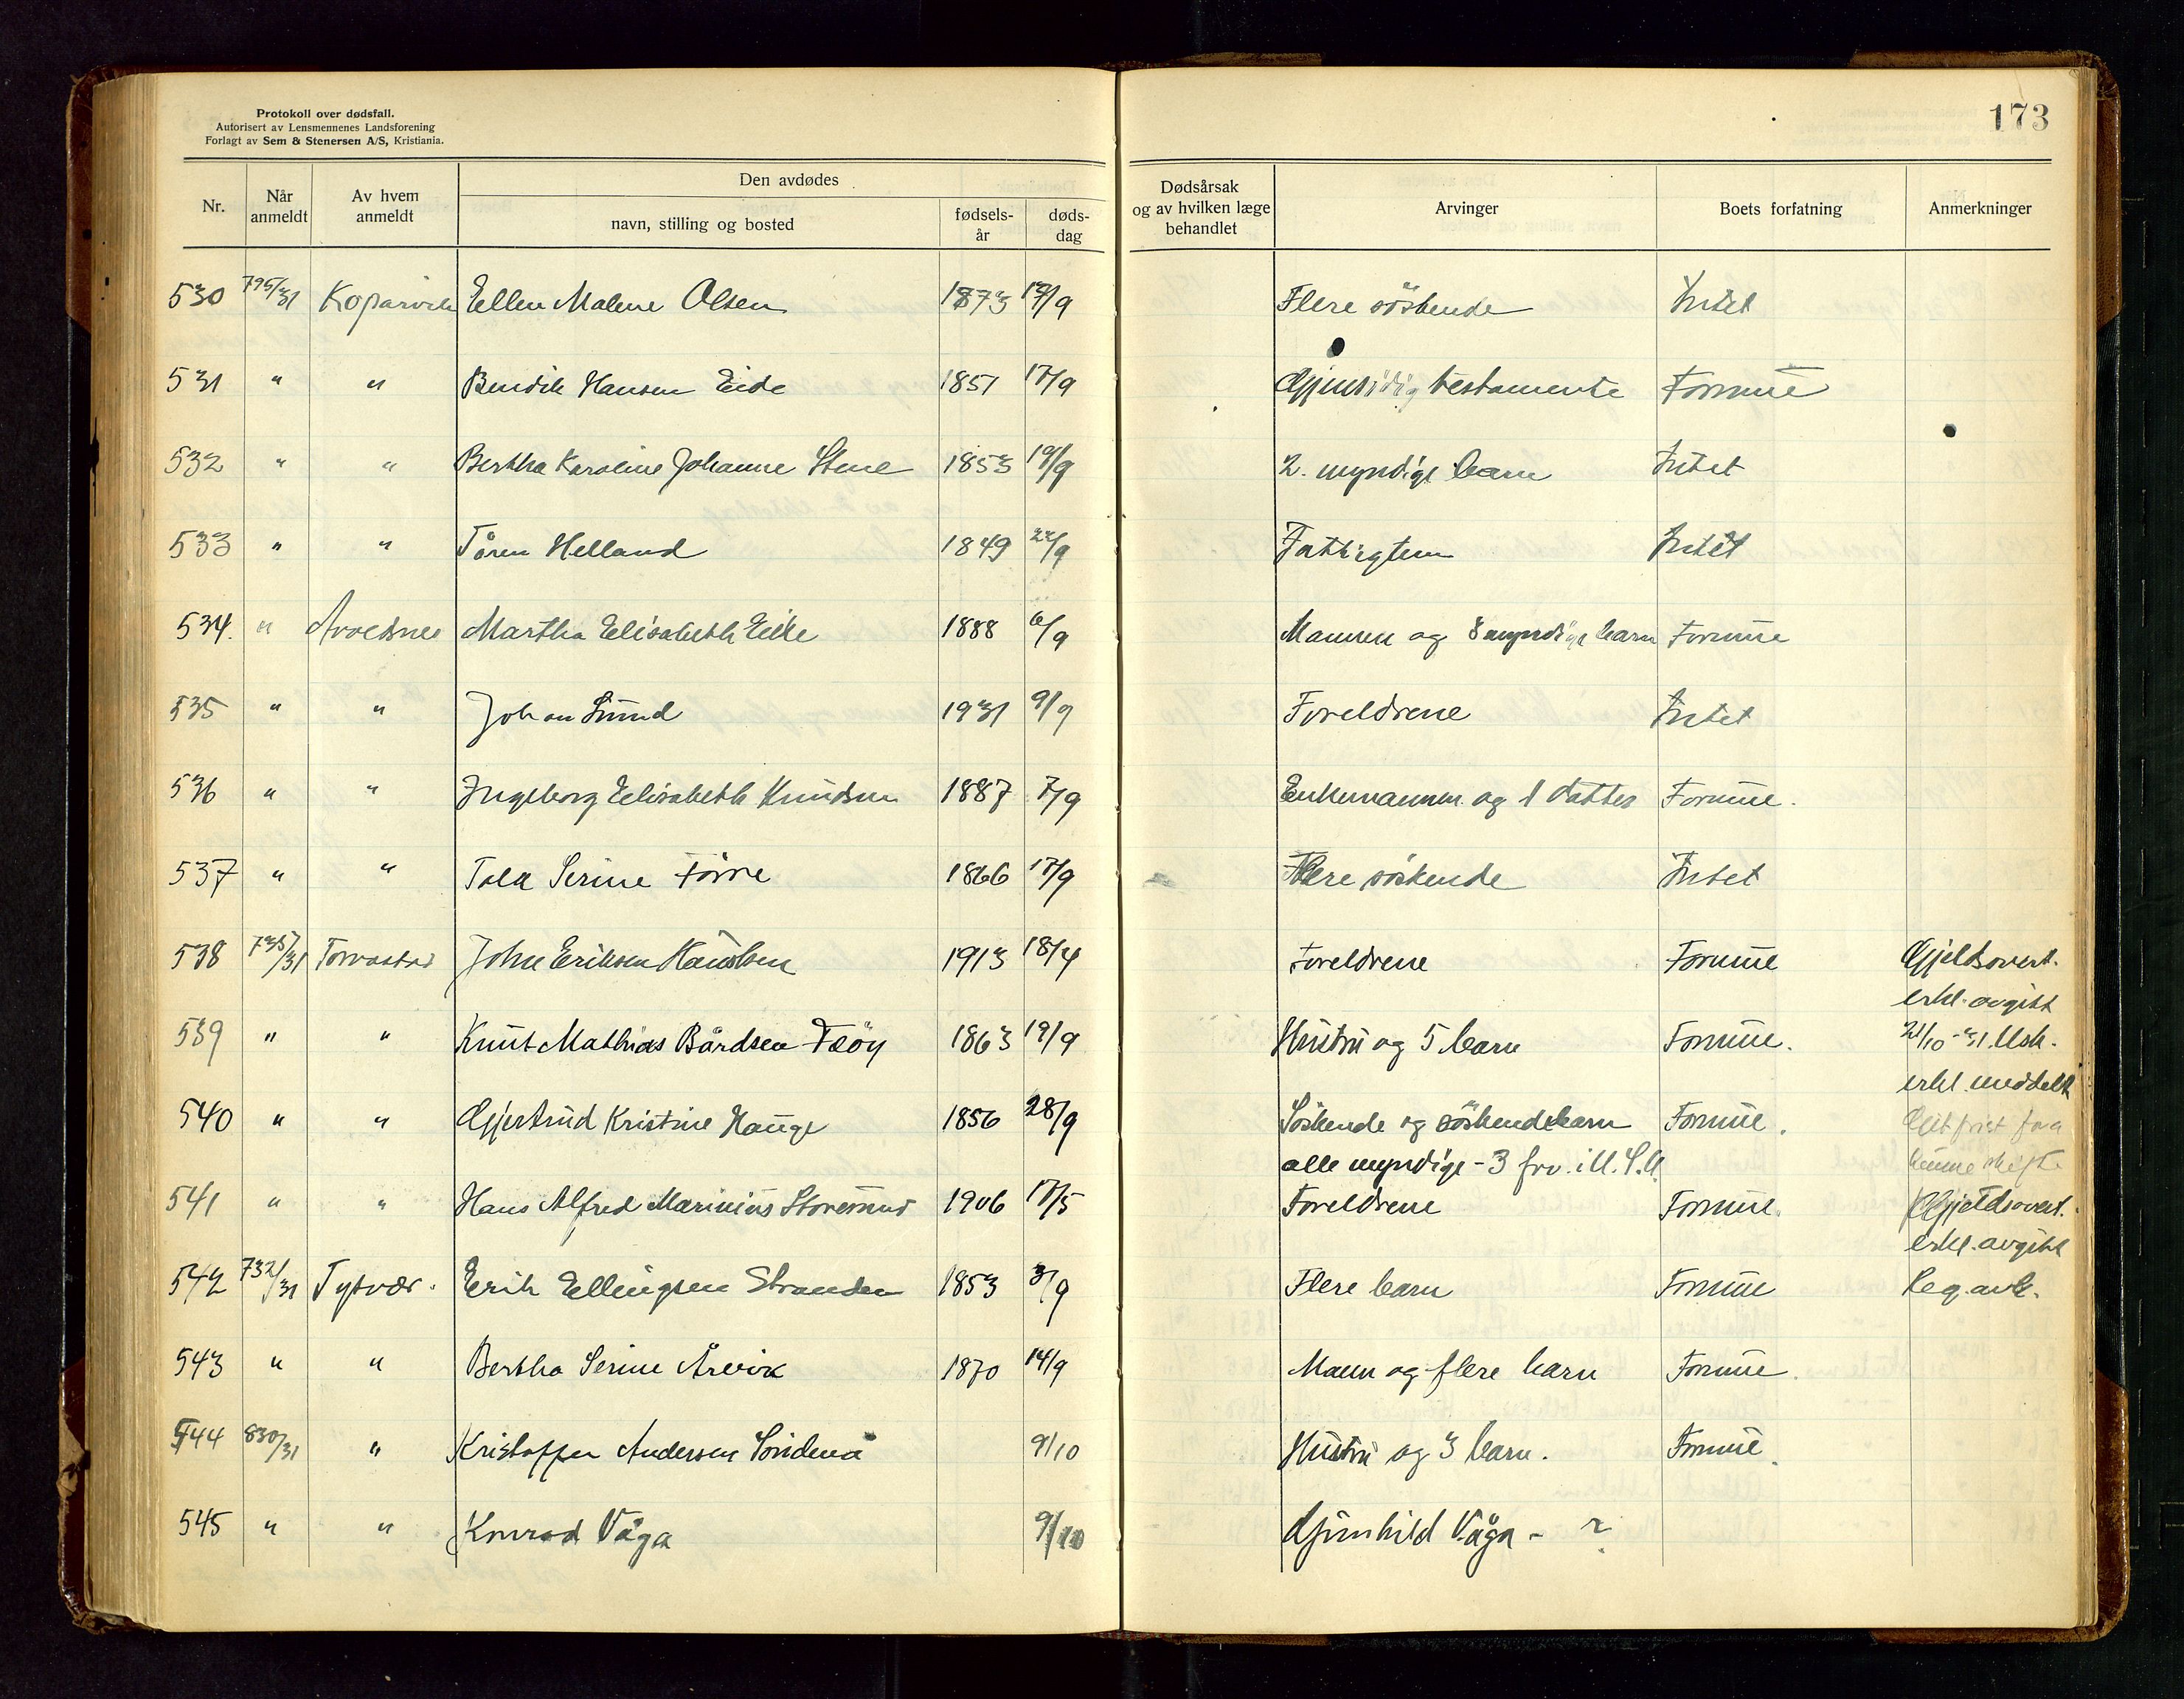 Protokoll over dødsfall.
Autorisert av Lensmennenes Landsforening
Forlagt av Sem & Stenersen A/S, Kristiania.
173
Nr. Når anmeldt Av hvem anmeldt Den avdødes navn, stilling og bosted fødsels-år døds-dag Dødsårsak og av hvilken læge behandlet Arvinger Boets forfatning Anmerkninger
530 795/31 Kopervik Ellen Malene Olsen 1873 /9 Flere söskende Intet
531 " " Bendik Hansen Eide 1851 17/9 Gjensidig testamente Formue
532 " " Bertha Karoline Johanne Stene 1853 19/9 2. myndige barn Intet
533 " " Tören Helland 1849 22/9 Intet
534. " Martha Elisabeth Eike 1888 6/9 Mannen og 8 myndige barn Formue
535 " " Johan Lund 1931 9/9 Foreldrene Intet
536 " " Ingeborg Elisabeth Knudsen 1887 7/9 Enkemannen og 1 datter Formue.
537 " " Serine Törre 1866 17/9 Flere söskende Intet
538 735/31 Torvastad John Eriksen 1913 18/4 Foreldrene Formue Gjeldsovert.
erkl. avgitt
539 " " Knut Mathias Bårdsen Feöy 1863 19/9 Hustru og 5 barn Formue. 21/10-31. Usk.
erkl. meddelt
540 " " Gjertrud Kristine Hauge 1856 28/9 Söskende og söskendebarn Formue.
alle myndige - 3 frv. i U.S.A.
541 " " Hans Alfred Marinius Storesund 1906 17/5 Foreldrene Formue. Gjeldsovert.
erkl. avgitt
542 732/31 Tysvær. Erik Ellingsen Stranden 1853 3/9 Flere barn Formue
543 " " Bertha Serine Årevik 1870 14/9 Mann og flere barn Formue.
544 830/31 " Kristoffer Andersen Söndenå 9/10 Hustru og 3 barn. Formue.
545 " " Konrad Våga 9/10 Gunhild Våga - ?